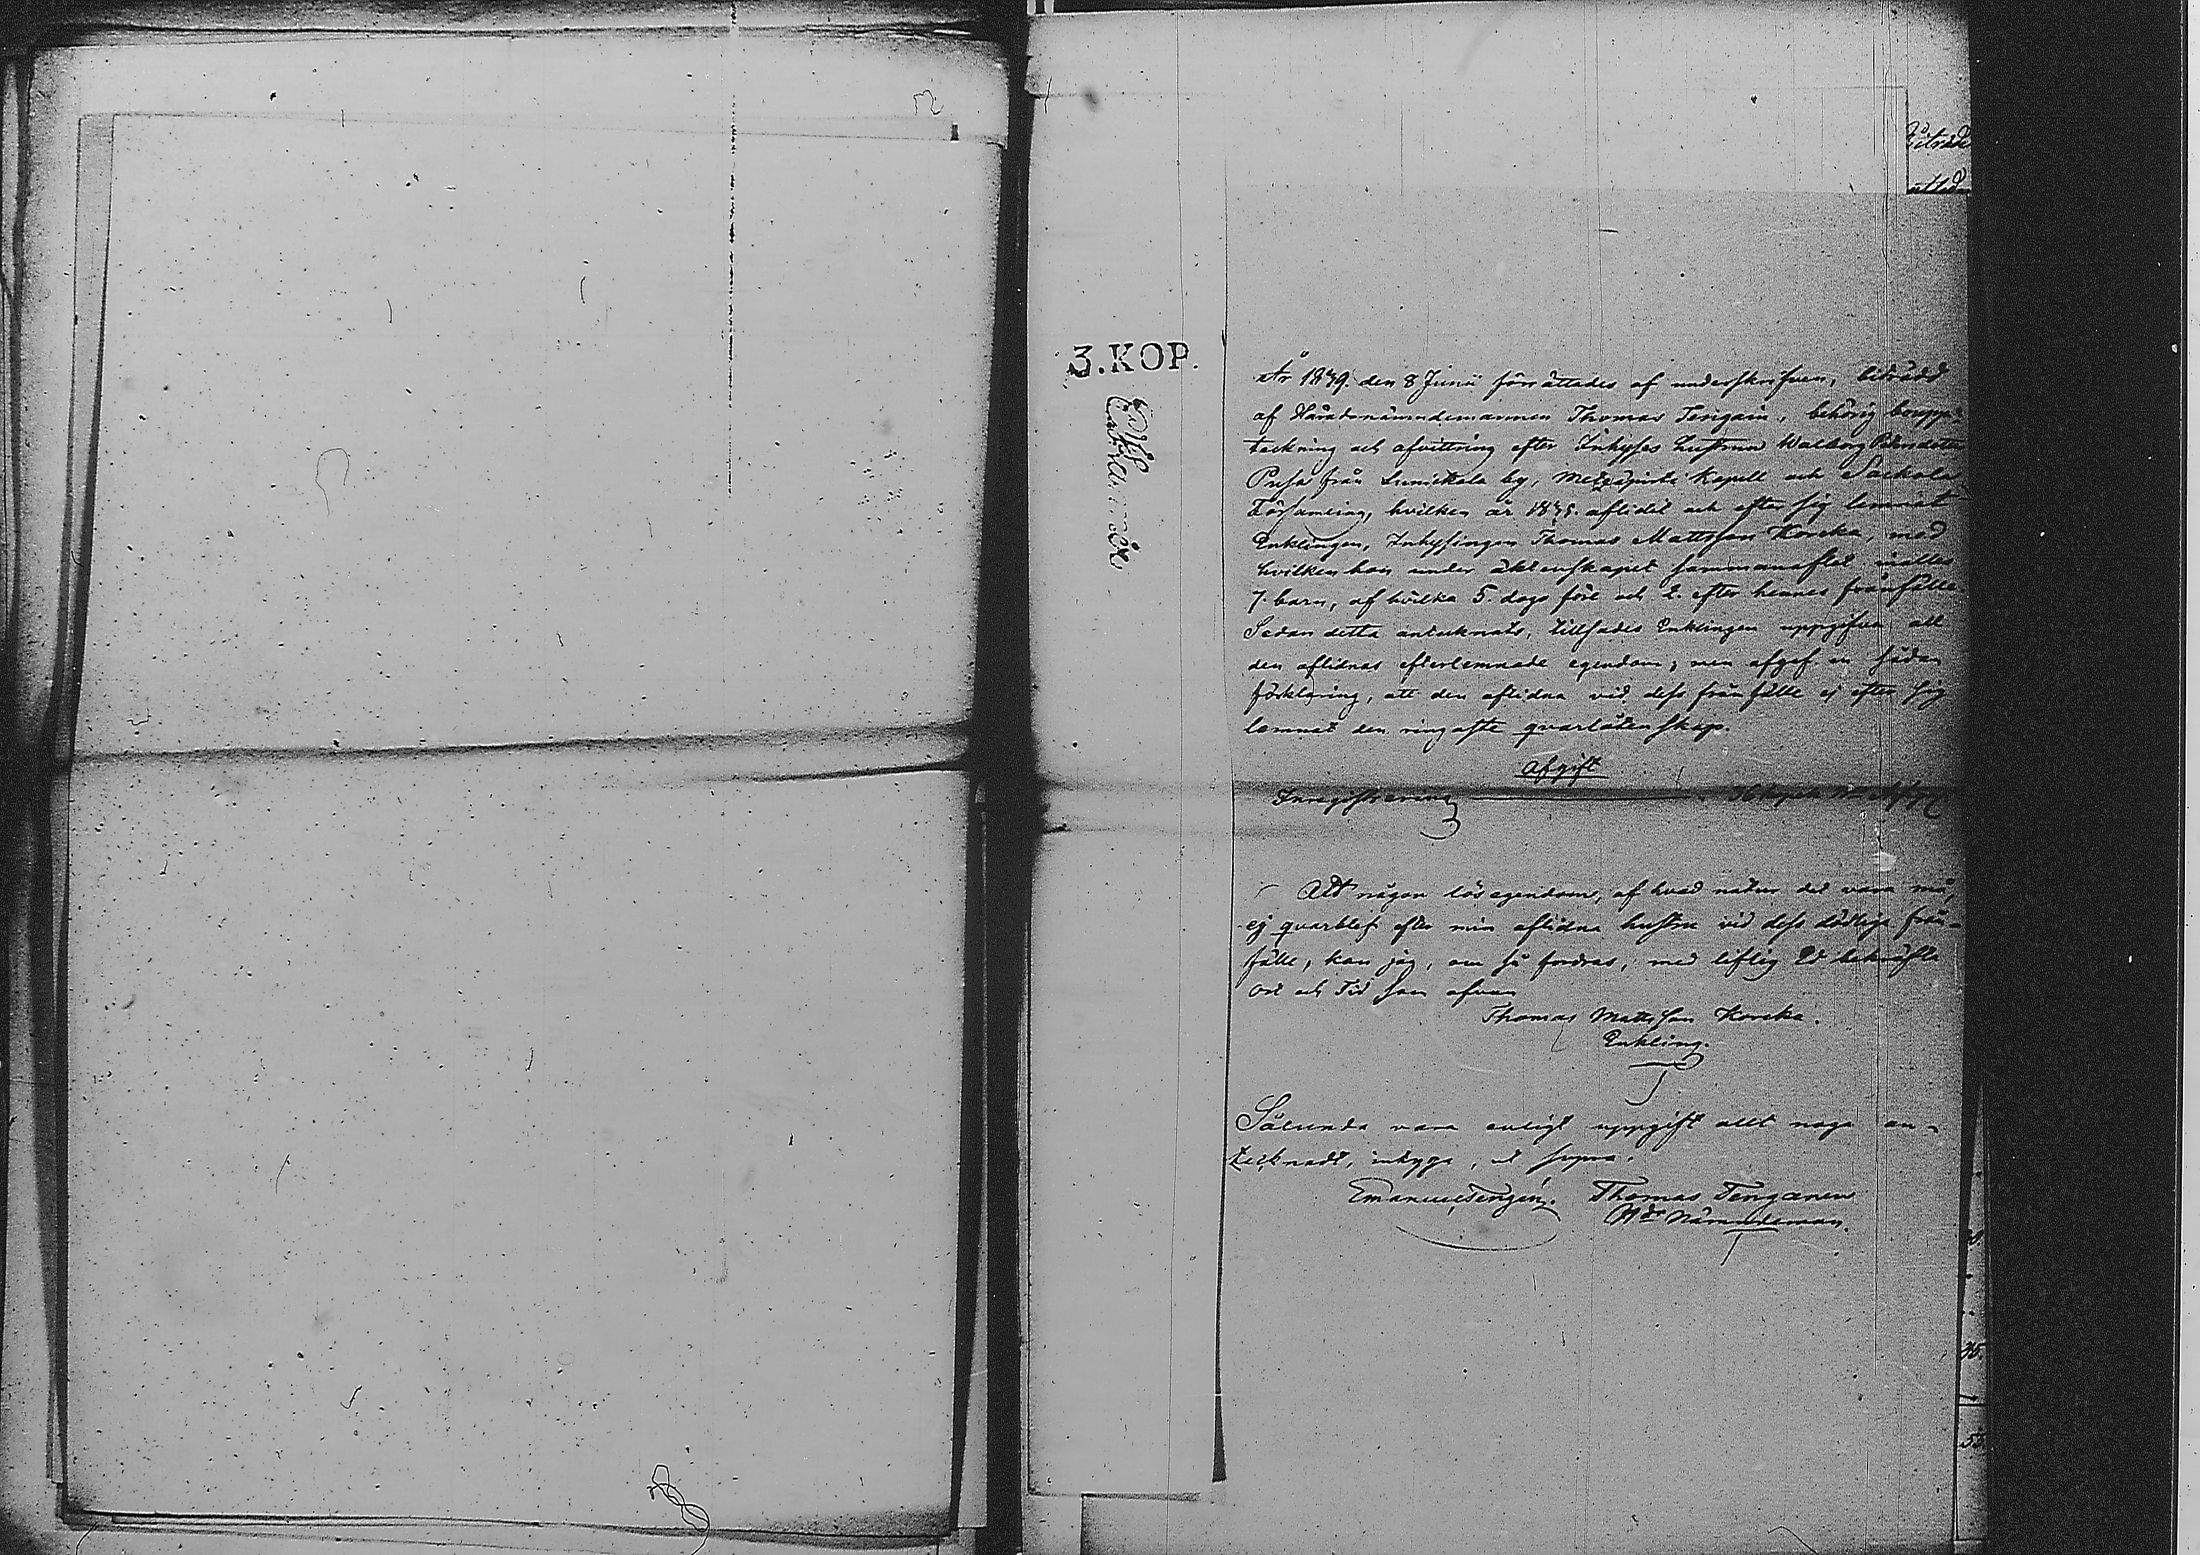 52
3. KOP.
År 1839 den 8 Junii förrättades af underskrifven, biträdd
af Häradsnämndemannen Thomas Tengain, behörig bouppe-
teckning och afvittring efter Inhyses hustrun Walborg
Pusa från by, Metsäpirtti Kapell och Sackola
Församling, hvilken år aflidit och efter sig lemnat
Enklingen, Inhysingen Thomas Mattsson Koreka, med
hvilken hon under äktenskapet sammanaflat
7. barn, af hvilka 5. dogo före och 2. efter hennes frånfälle
Sedan detta antecknats, tillsades Enklingen uppgifva all
den aflidnas efterlemnade egendom; men afgaf en sådan
förklaring, att den aflidna vid dess frånfälle ej efter sig
lemnat den ringaste qvarlåtenskap.
Afgift
Inregistrering
Att någon lös egendom, af hvad natur det vara må,
ej qvarblef efter min aflidna hustru vid dess dödliga från-
fälle, kan jag, om så fordras, med liflig Ed bekräfta
ort och Tid som ofvan
Thomas Mattsson Koreka.
Enkling.
Sålunda vara enligt uppgift allt noga an-
tecknadt, intyga, ut supra.
Emanuel Tengén. Thomas Tenganen
Hds Nämndeman.
45.